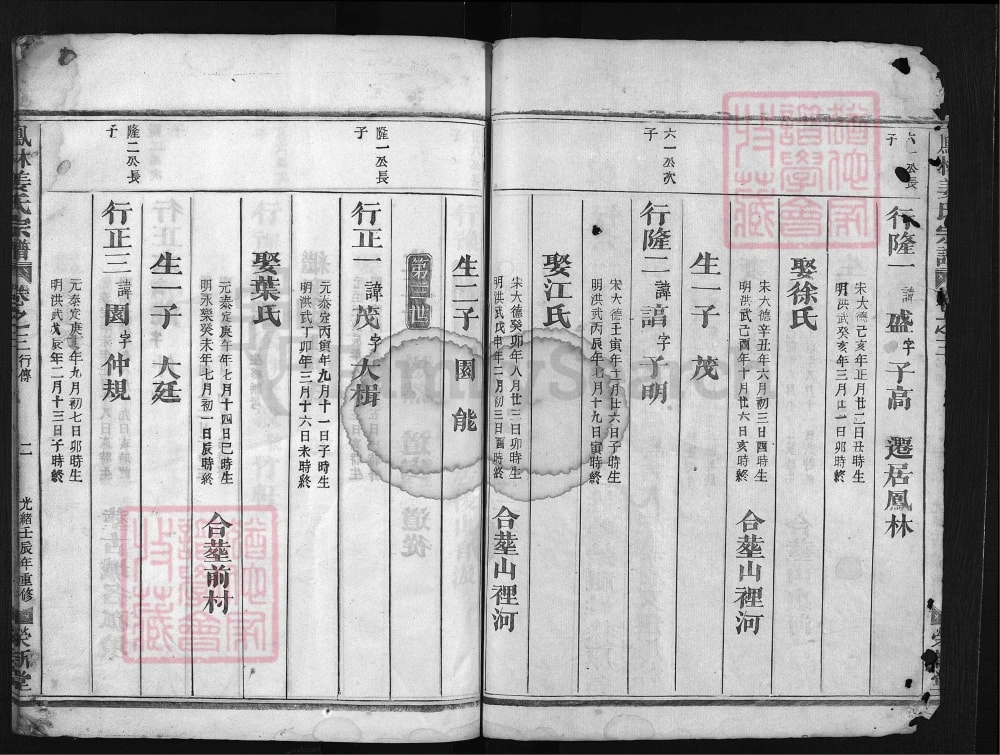 六一公長子
行隆一 諱盛字子高 遷居鳳林
宋大德己亥年正月廿二日丑時生
明洪武癸亥年三月廿一日卯時終
娶徐氏
宋大德辛丑年六月初三日酉時生
明洪武己酉年十月廿六日亥時終
合塟山裡河
生一子 茂
六一公次子
行隆二 諱諳字子明
宋大德壬寅年二月廿六日子時生
明洪武丙辰年七月十九日寅時終
娶江氏
宋大德癸卯年八月廿三日卯時生
明洪武戊申年二月初三日酉時終
合塟山裡河
生二子 園 能
第三世
隆一公長子
行正一 諱茂字大楫
元泰定丙寅年九月十一日子時生
明洪武丁卯年三月十六日未時終
娶葉氏
元泰定庚午年七月十四日巳時生
明永樂癸未年七月初一日辰時終
合塟前村
生一子 大廷
隆二公長子
行正三 諱園字仲規
元泰定庚午年九月初七日卯時生
明洪武戊辰年二月十三日子時終
鳳林姜氏宗譜 卷之三 行傳 二 光緒壬辰年重修 榮新堂